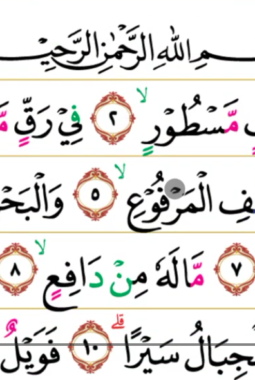 ـمِ اللهِ الرَّحْمٰنِ الرَّحِيْـ
مَّسْطُوْرٍ ۙ ٢ فِيْ رَقٍّ مَّـ
ـفِ الْمَرْفُوْعِ ۙ ٥ وَالْبَحْـ
٧ مَّالَهٗ مِنْ دَافِعٍ ۙ ٨
ـجِبَالُ سَيْرًا ۗ ١٠ فَوَيْلٌ